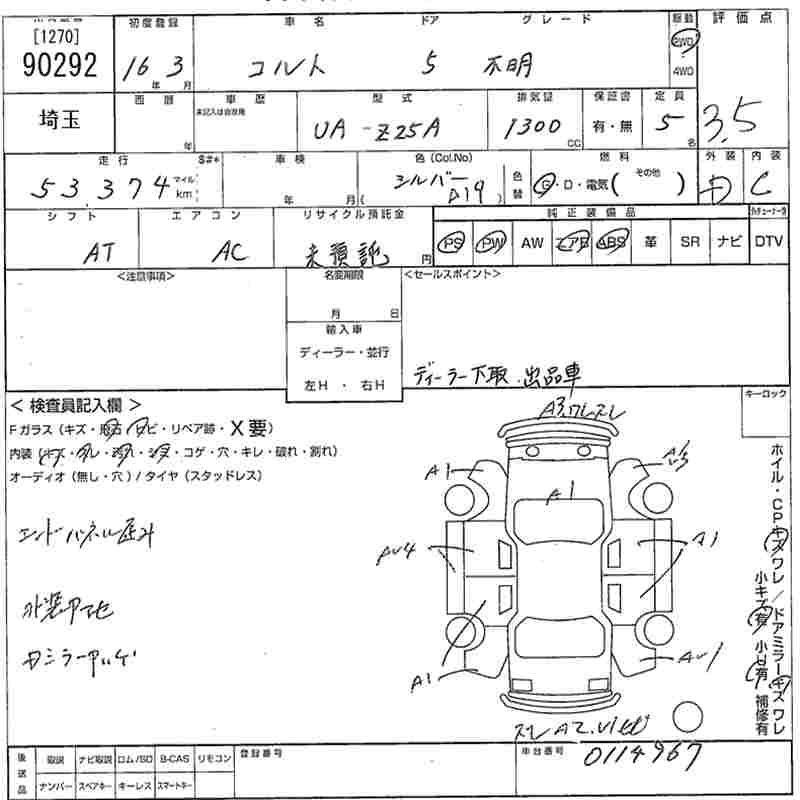 [1270]
90292
初度登録
16 3
年 月
車名 ドア グレード
コルト 5 不明
駆動
2WD
4WD
評価点
3.5
埼玉
西暦
年
車歴
未記入は自家用
型式
UA-Z25A
排気量
1300
CC
保証書
有・無
定員
5
名
走行 $#*
53,374 マイル km
車検
年 月
色 (Col.No)
シルバー
( A19 )
色替
燃料
G・D・電気( その他 )
外装

内装
C
シフト
AT
エアコン
AC
リサイクル預託金
未預託 円
純正装備品
PS PW AW エアB ABS 革 SR ナビ DTV
<注意事項>
名変期限
月 日
輸入車
ディーラー・並行
左H・右H
<セールスポイント>
ディーラー下取 出品車
キーロック
< 検査員記入欄 >
Fガラス (キズ・飛石・ワビ・リペア跡・X要)
内装 (キズ・スレ・汚れ・シミ・コゲ・穴・キレ・破れ・割れ)
オーディオ (無し・穴) / タイヤ (スタッドレス)
エンドパネル歪み
A3.ワレスレ
A1
A1
AU4
A1
A1
AU1
ホイル・CPキズワレ/ドアミラーキズワレ
小キズ有 小U有 補修有
後送品
取説 ナビ取説 ロム/SD B-CAS リモコン
ナンバー スペアキー キーレス スマートキー
登録番号
車台番号
0114967